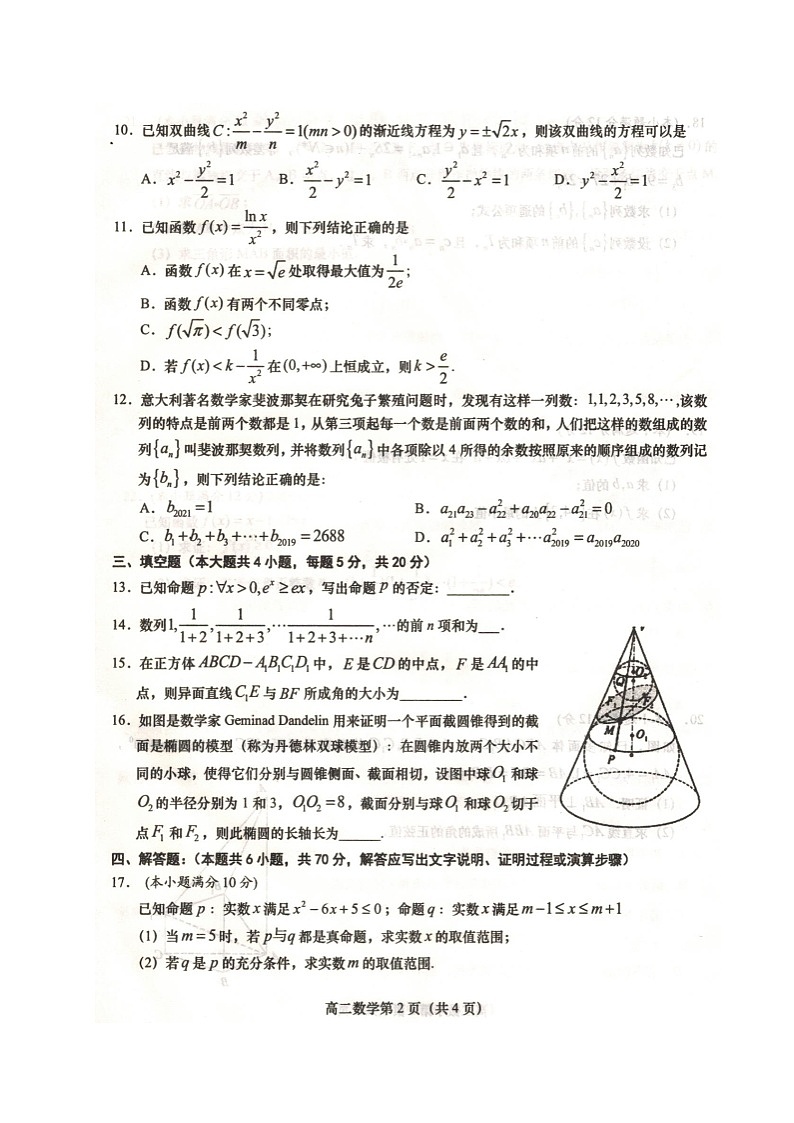 10．已知双曲线 C: x²/m − y²/n = 1(mn > 0) 的渐近线方程为 y = ±√2x，则该双曲线的方程可以是
A．x² − y²/2 = 1 B．x²/2 − y² = 1 C．y²/2 − x² = 1 D．y² − x²/2 = 1
11．已知函数 f(x) = ln x/x²，则下列结论正确的是
A．函数 f(x) 在 x = √e 处取得最大值为 1/2e；
B．函数 f(x) 有两个不同零点；
C．f(√π) < f(√3)；
D．若 f(x) < k − 1/x² 在 (0,+∞) 上恒成立，则 k > e/2．
12．意大利著名数学家斐波那契在研究兔子繁殖问题时，发现有这样一列数：1,1,2,3,5,8,⋯,该数
列的特点是前两个数都是 1，从第三项起每一个数是前面两个数的和，人们把这样的数组成的数
列{aₙ}叫斐波那契数列，并将数列{aₙ}中各项除以 4 所得的余数按照原来的顺序组成的数列记
为{bₙ}，则下列结论正确的是：
A．b₂₀₂₁ = 1 B．a₂₁a₂₃ − a₂₂² + a₂₀a₂₂ − a₂₁² = 0
C．b₁ + b₂ + b₃ + ⋯ + b₂₀₁₉ = 2688 D．a₁² + a₂² + a₃² + ⋯a₂₀₁₉² = a₂₀₁₉a₂₀₂₀
三、填空题（本大题共 4 小题，每题 5 分，共 20 分）
13．已知命题 p: ∀x > 0, eˣ ≥ ex，写出命题 P 的否定：________．
14．数列1, 1/1+2, 1/1+2+3, ⋯ 1/1+2+3+⋯n, ⋯的前 n 项和为___．
15．在正方体 ABCD − A₁B₁C₁D₁ 中，E 是 CD 的中点，F 是 AA₁ 的中
点，则异面直线 C₁E 与 BF 所成角的大小为________．
16．如图是数学家 Geminad Dandelin 用来证明一个平面截圆锥得到的截
面是椭圆的模型（称为丹德林双球模型）：在圆锥内放两个大小不
同的小球，使得它们分别与圆锥侧面、截面相切，设图中球 O₁ 和球
O₂ 的半径分别为 1 和 3，O₁O₂ = 8，截面分别与球 O₁ 和球 O₂ 切于
点 F₁ 和 F₂，则此椭圆的长轴长为______．
Q O₂
F₁
M O₁
P
四、解答题：（本题共 6 小题，共 70 分，解答应写出文字说明、证明过程或演算步骤）
17．(本小题满分 10 分)
已知命题 p：实数 x 满足 x² − 6x + 5 ≤ 0；命题 q：实数 x 满足 m − 1 ≤ x ≤ m + 1
（1）当 m = 5 时，若 p与q 都是真命题，求实数 x 的取值范围；
（2）若 q 是 p 的充分条件，求实数 m 的取值范围.
高二数学第 2 页（共 4 页）